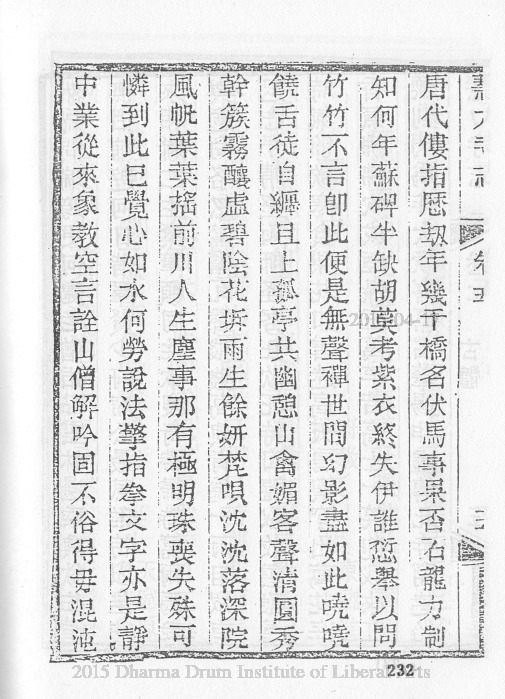 唐代僂指厯刼年幾千橋名伏馬事杲否石龍力制
知何年蘇碑半缺胡莫考紫衣終失伊誰愆舉以問
竹竹不言卽此便是無聲禪世間幻影盡如此嘵嘵
饒舌徒自纒且上孤亭共幽憩山禽媚客聲清圓秀
幹簇霧釀虛碧陰花坼雨生餘妍梵唄沈沈落深院
風帆葉葉搖前川人生塵事那有極明珠喪失殊可
憐到此已覺心如水何勞說法擎指拳文字亦是靜
中業從來象教空言詮山僧解吟固不俗得毋混沌
232
2015 Dharma Drum Institute of Liberal Arts